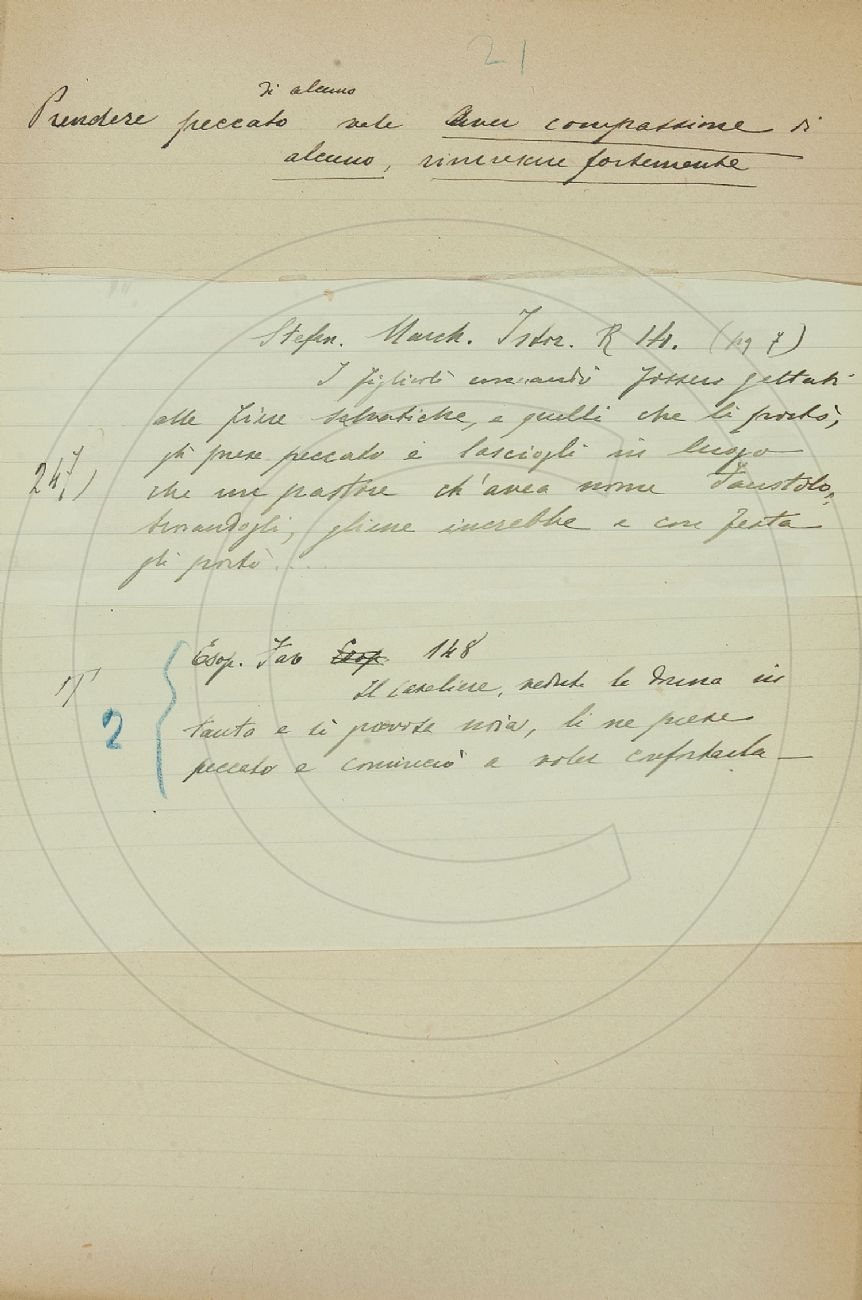 21
di alcuno
Prendere peccato vale Aver compassione di
alcuno, rincrescere fortemente
Stefan. March. Istor. R It. (pg 7)
I figliuoli comandò fossero gettati
alle fiere salvatiche, e quelli che li portò,
gli prese peccato e lasciogli in luogo
247)
che un pastore ch'avea nome Faustolo,
trovandogli, gliene increbbe e con festa
gli portò ....
Esop. Fav 148
Il cavaliere, veduta la donna in
2
tanta e sì noia, li ne prese
peccato e cominciò a voler confortarla —